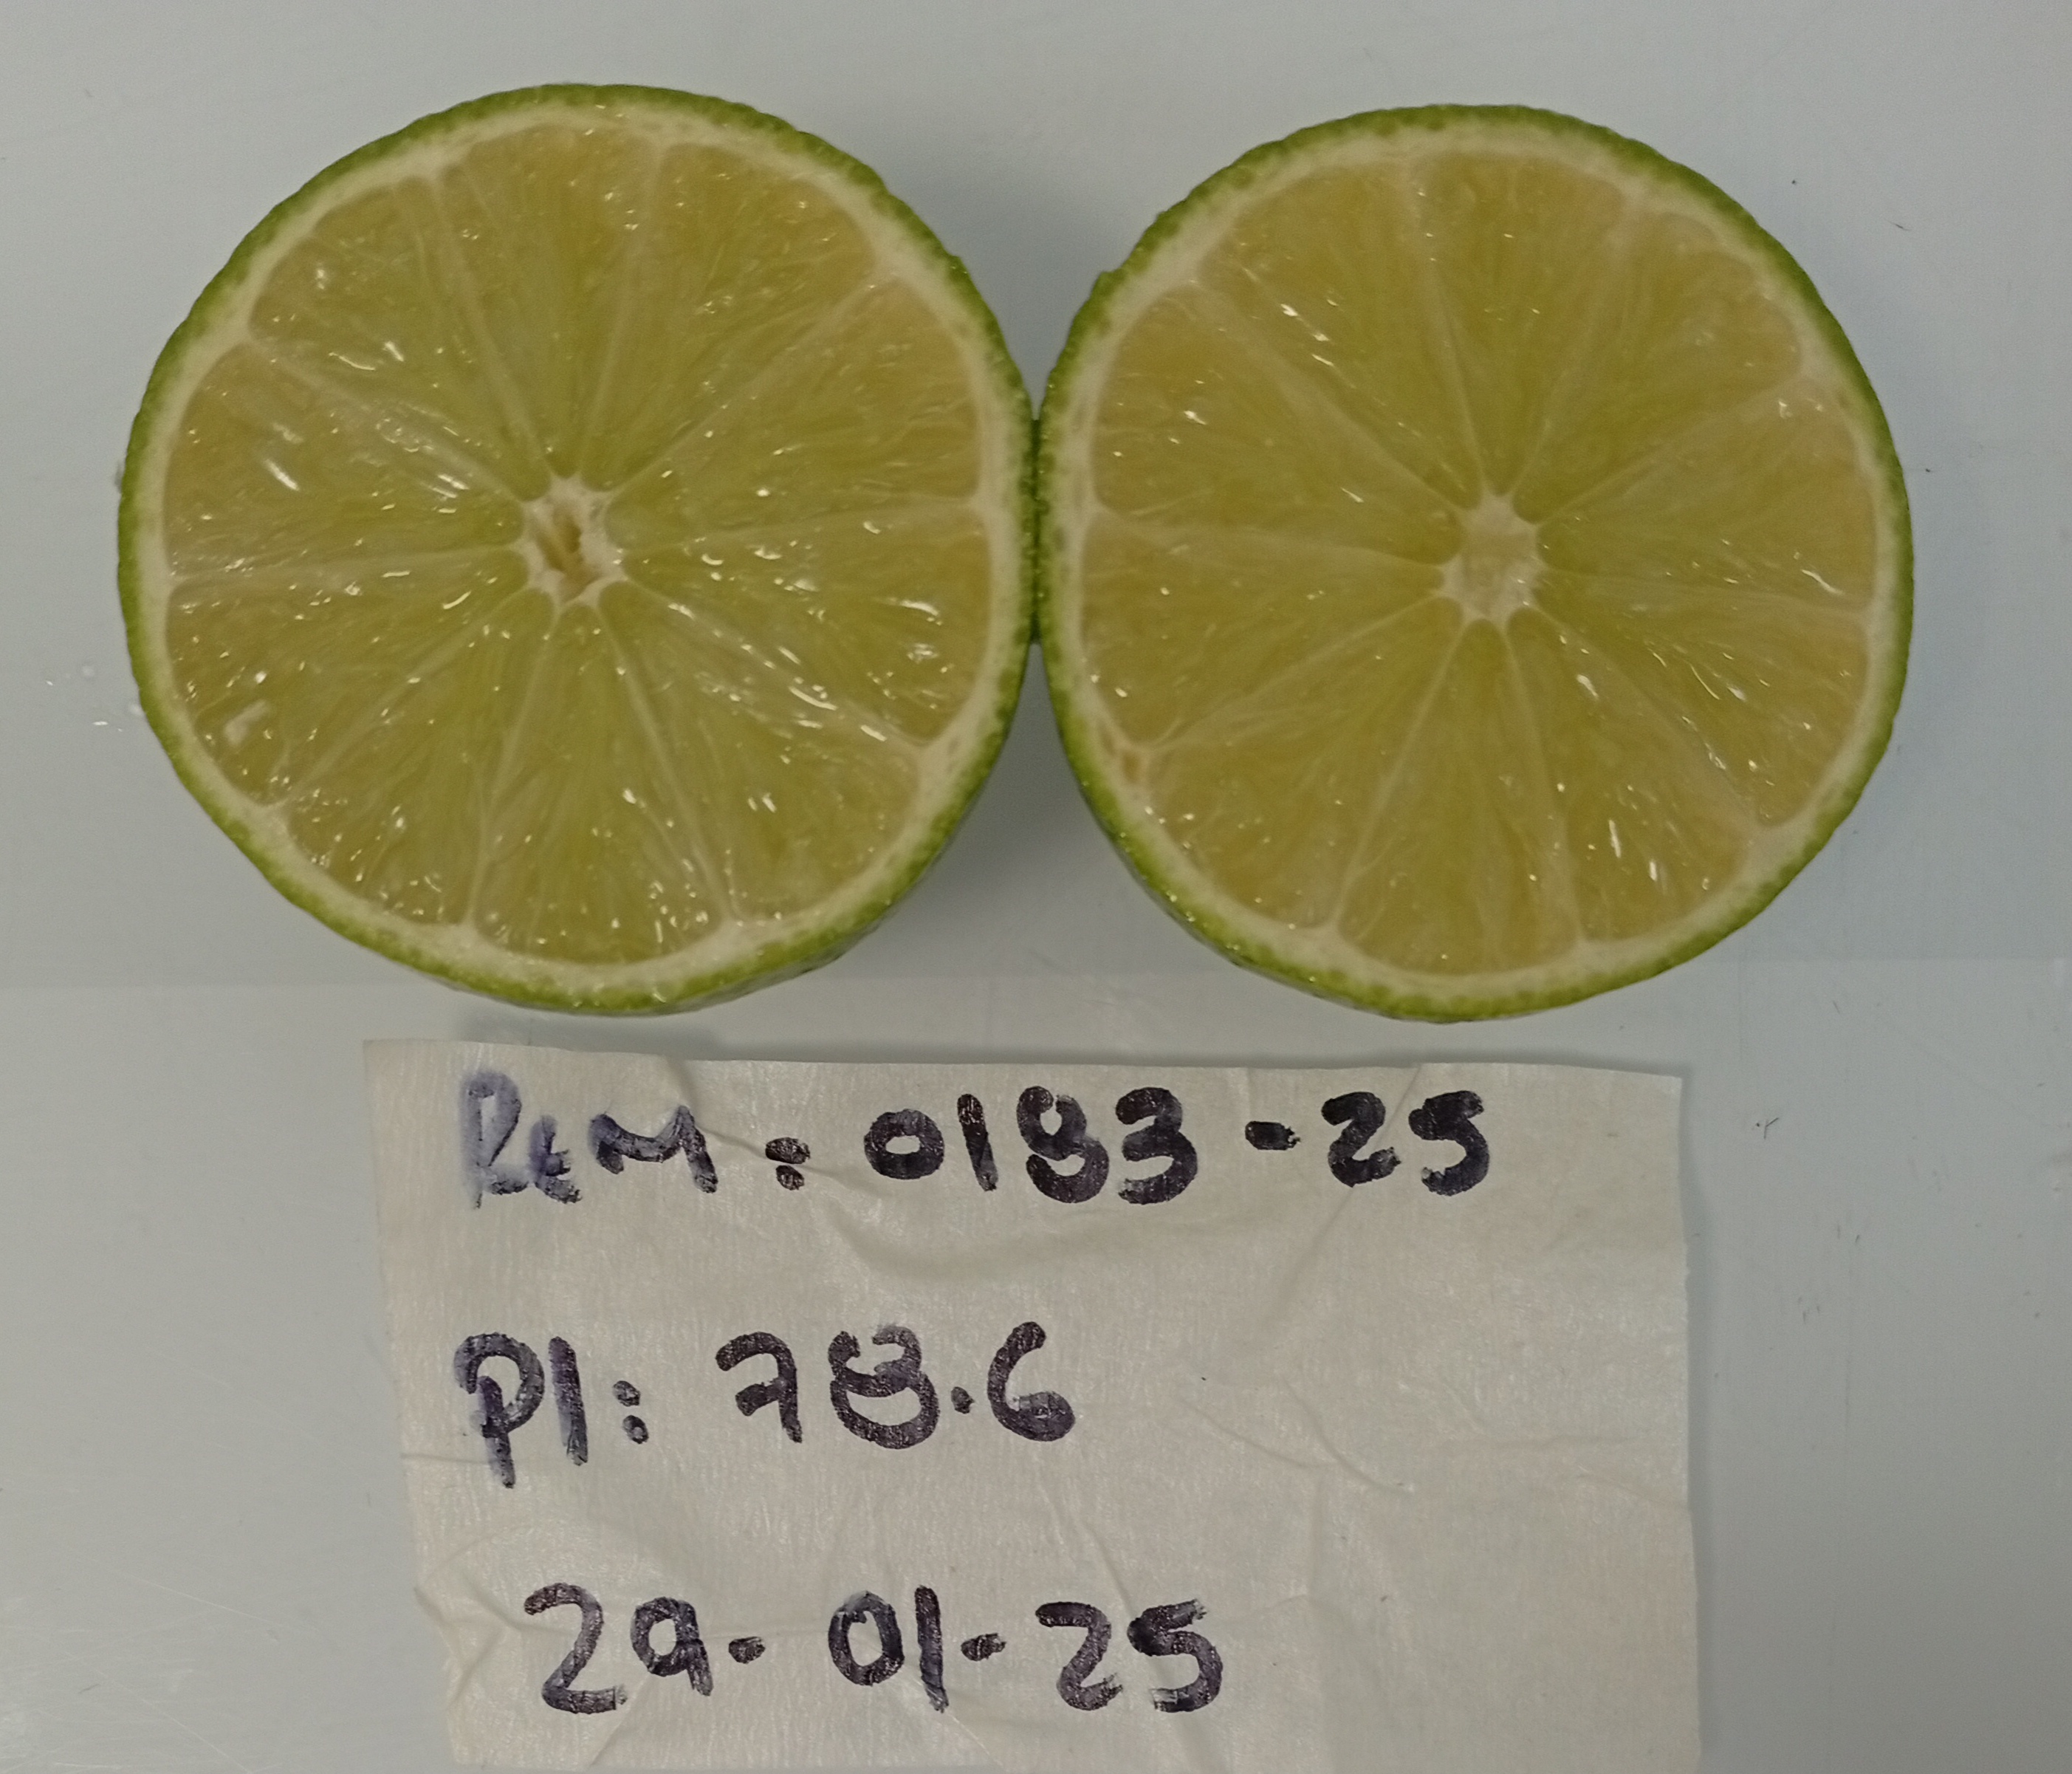 REM: 0183-25
PI: 78.6
29-01-25